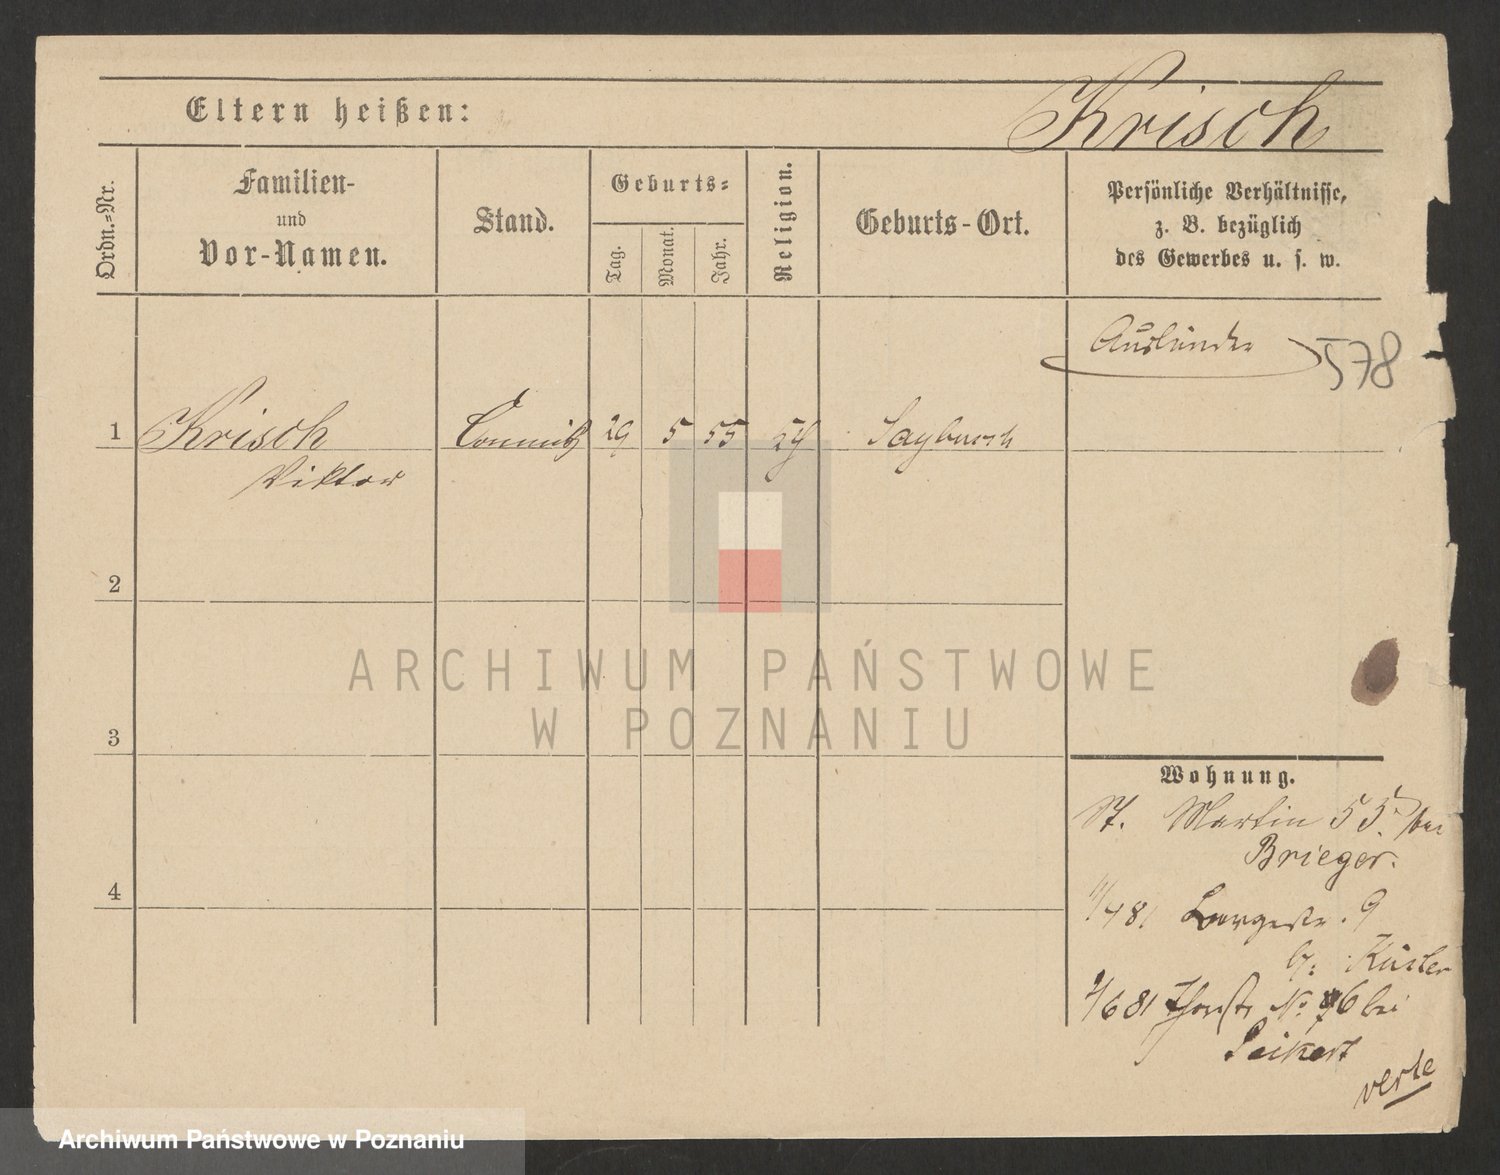 Eltern heißen:
Krisch
Ordn.-Nr.
Familien-
und
Vor-Namen.
Stand.
Geburts-
Tag.
Monat.
Jahr.
Religion.
Geburts-Ort.
Persönliche Verhältnisse,
z. B. bezüglich
des Gewerbes u. s. w.
Ausländer
578
1
Krisch
Viktor
Commis
29
5
55
Saybusch
2
3
4
ARCHIWUM PAŃSTWOWE
W POZNANIU
Wohnung.
St. Martin 55. bei
Brieger.
11/4 81
9
1/6 81
No 
6 bei
Seikert
verte
Archiwum Państwowe w Poznaniu